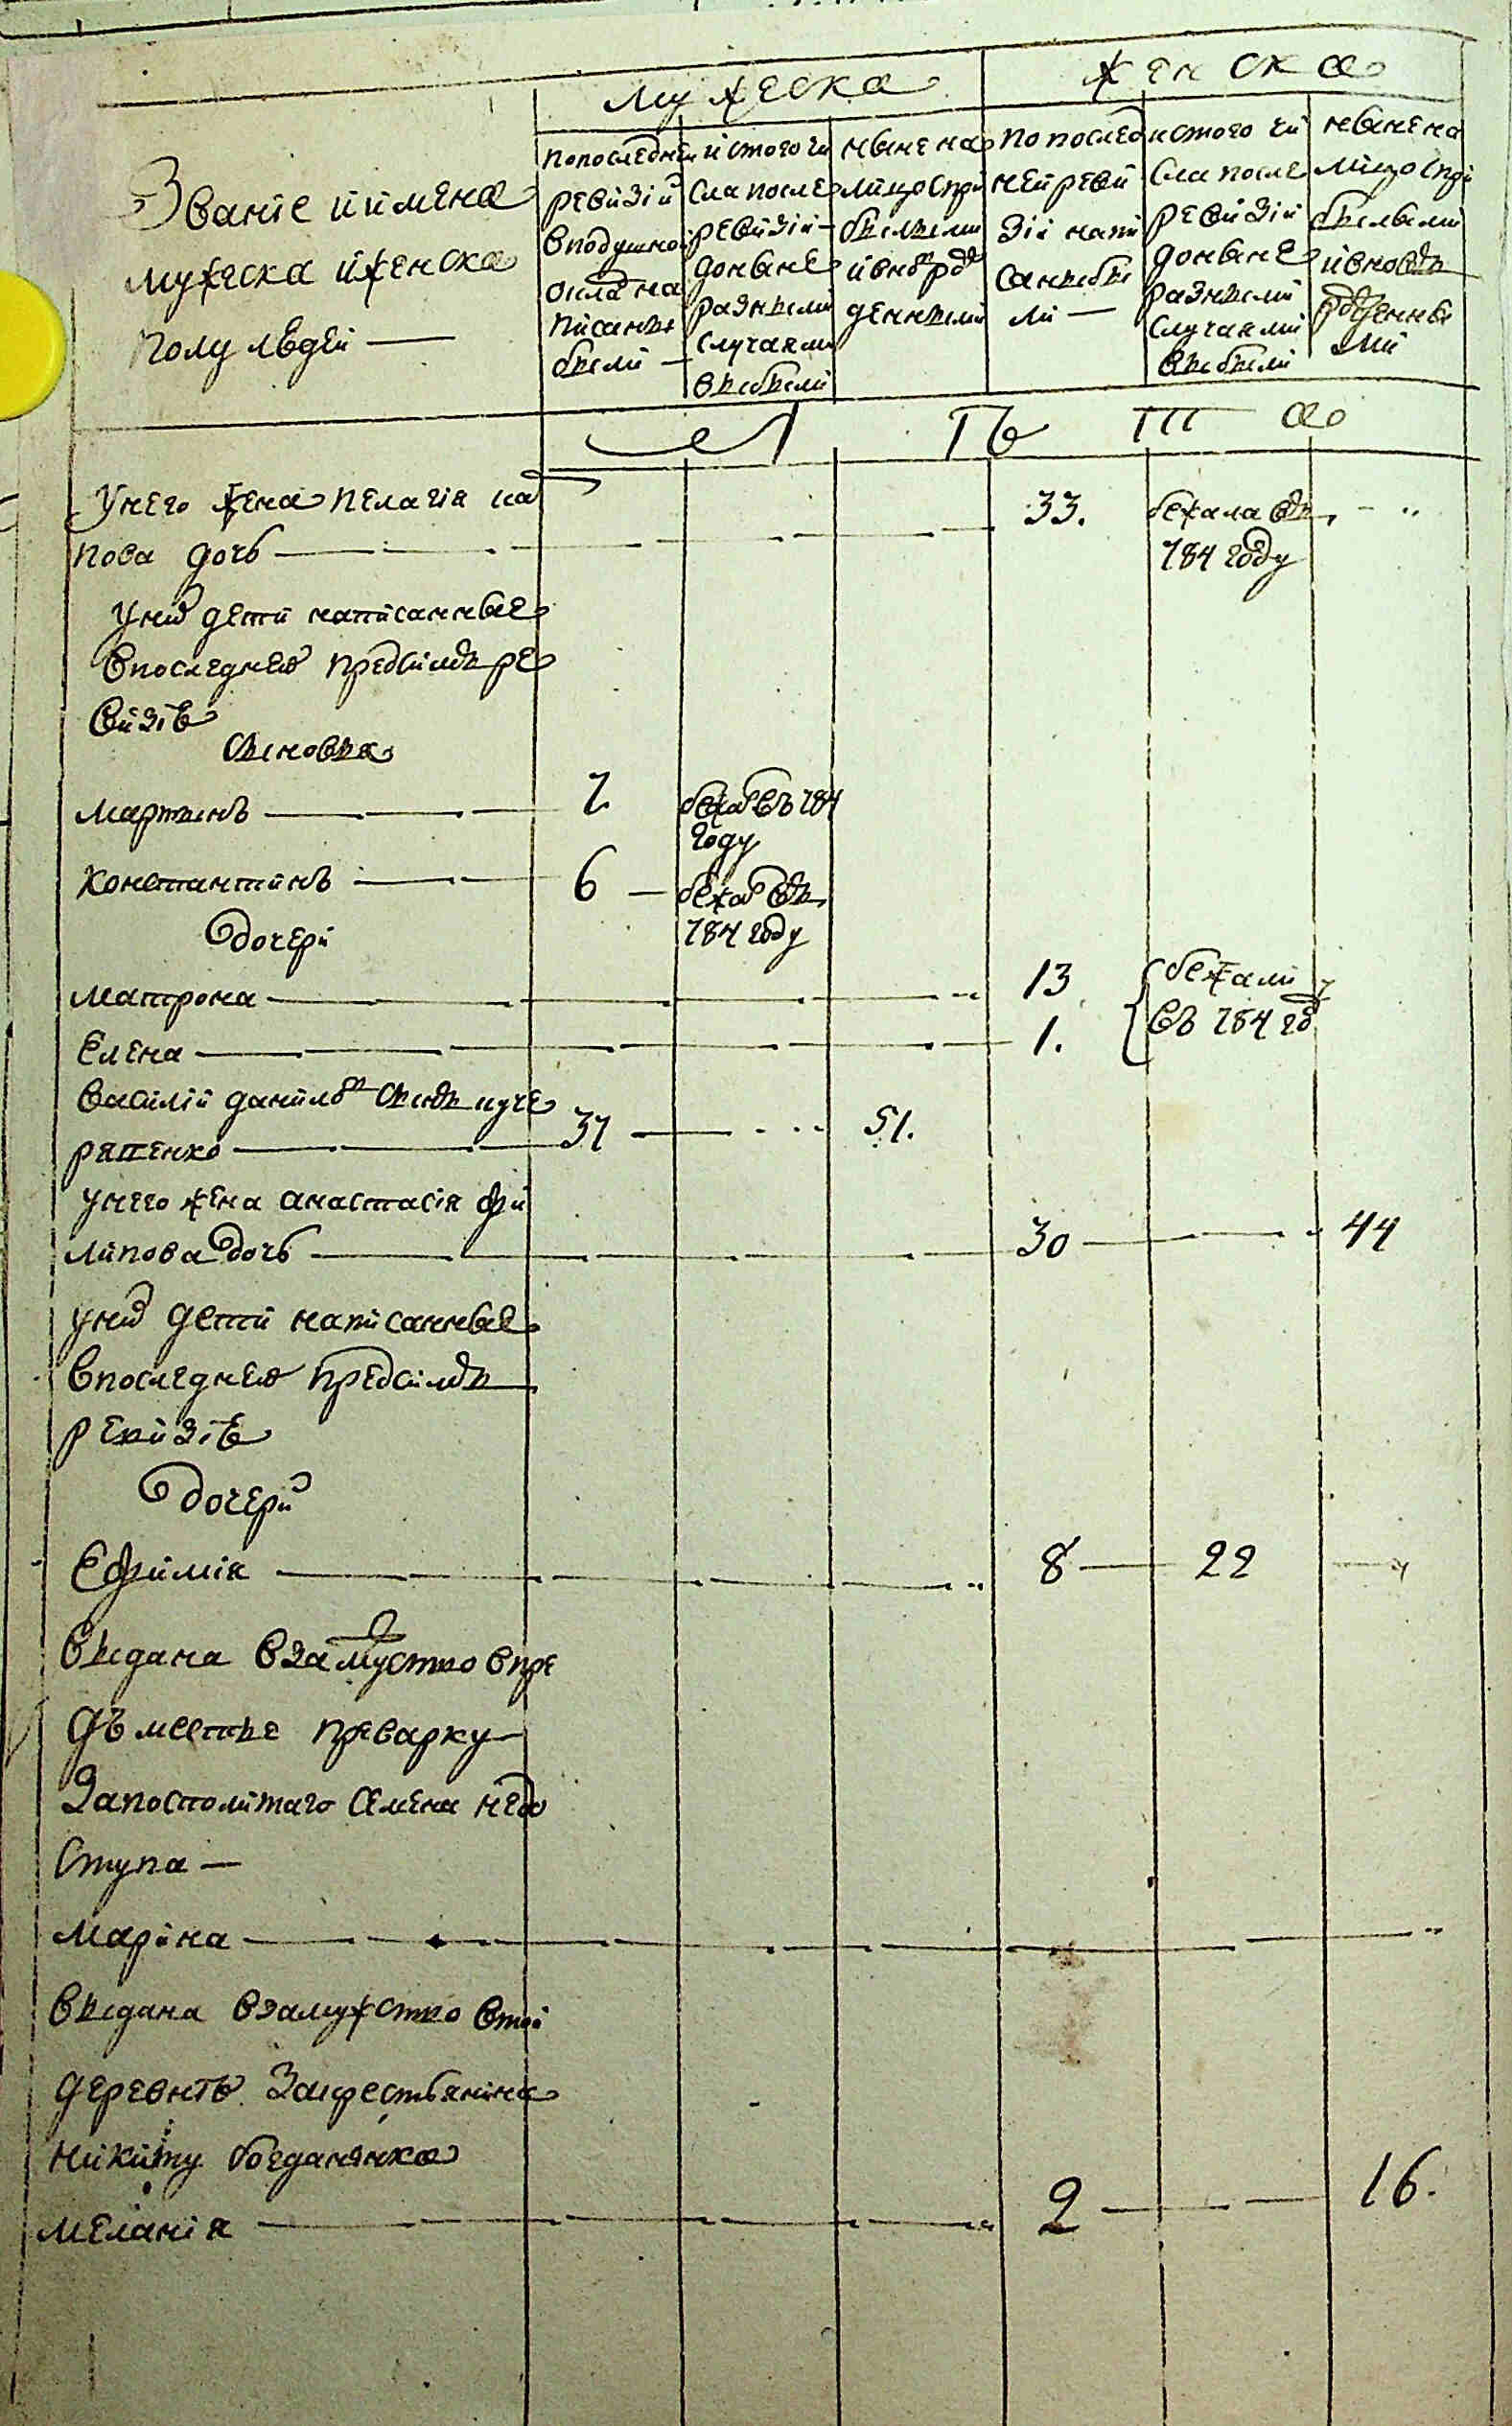 мужеска
женска
Званіе и имена
мужеска и женска
полу людей —
попоследней
ревизіи
вподушной
окладъ на
писанны
были —
и стого чи
сла после
ревизіи
до ныне
разными
случаями
выбыли
ныне на
лицо спри
былыми
и вновь ро
жденными
по послед
ней реви
зіи напи
саны бы
ли —
и стого чи
сла после
ревизіи
до ныне
разными
случаями
выбыли
ныне на
лицо при
былыми
и вновь
рожденны
ми
лѣта
У него жена Пелагія ка
пова дочь — 33. бежала въ
784 году
У них дети написанные
в последней пред симъ ре
визіѣ
сыновья
Мартинъ — 7 бежал въ 784
году
Константинъ — 6 — бежал въ
784 году
дочери
Матрона — 13
Елена — 1.
бежали
въ 784 год
Василій Данилов сынъ куче
ряпенко — 37 — 51.
У него жена Анастасія Фи
липова дочь — 30 — 44
У них дети написанные
в последней пред симъ
ревизіѣ
дочери
Ефимія — 8 — 22 —
выдана в замужство
дъместье преварку
за посполитаго Семена недо
ступа —
Марина —
выдана в замужство втой
деревнѣ за крестьянина
Никиту Богданенка
Меланія — 2 — 16.